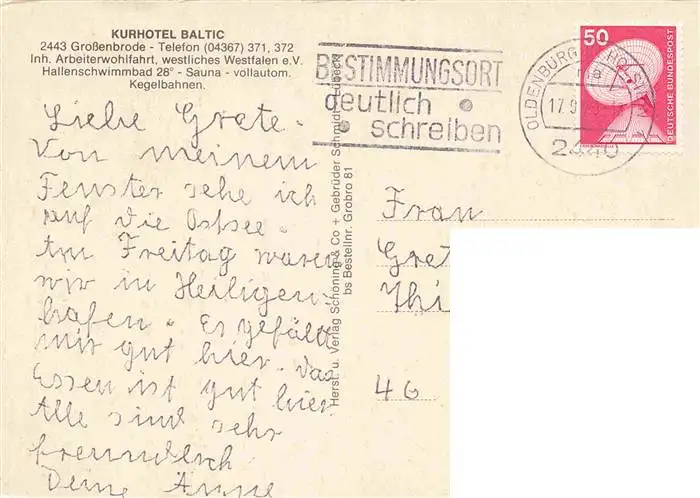 KURHOTEL BALTIC
2443 Großenbrode - Telefon (04367) 371, 372
Inh. Arbeiterwohlfahrt, westliches Westfalen e.V.
Hallenschwimmbad 28° - Sauna - vollautom.
Kegelbahnen.
Liebe Grete.
Von meinem
Fenster sehe ich
auf die Ostsee.
Am Freitag waren
wir in Heiligen
hafen. Es gefällt
mir gut hier. Das
Essen ist gut hier
Alle sind sehr
freundlich
Deine Änne
Herst. u. Verlag Schöning & Co + Gebrüder Schmidt, Lübeck
bs Bestellnr. Grobro 81
BESTIMMUNGSORT
deutlich
schreiben
OLDENBURG HOLST
17.9
2440
50
DEUTSCHE BUNDESPOST
Frau
Gret
Thi
46